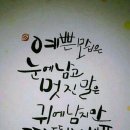 예쁜 모습은
눈에 남고
멋진 말은
귀에 남지만